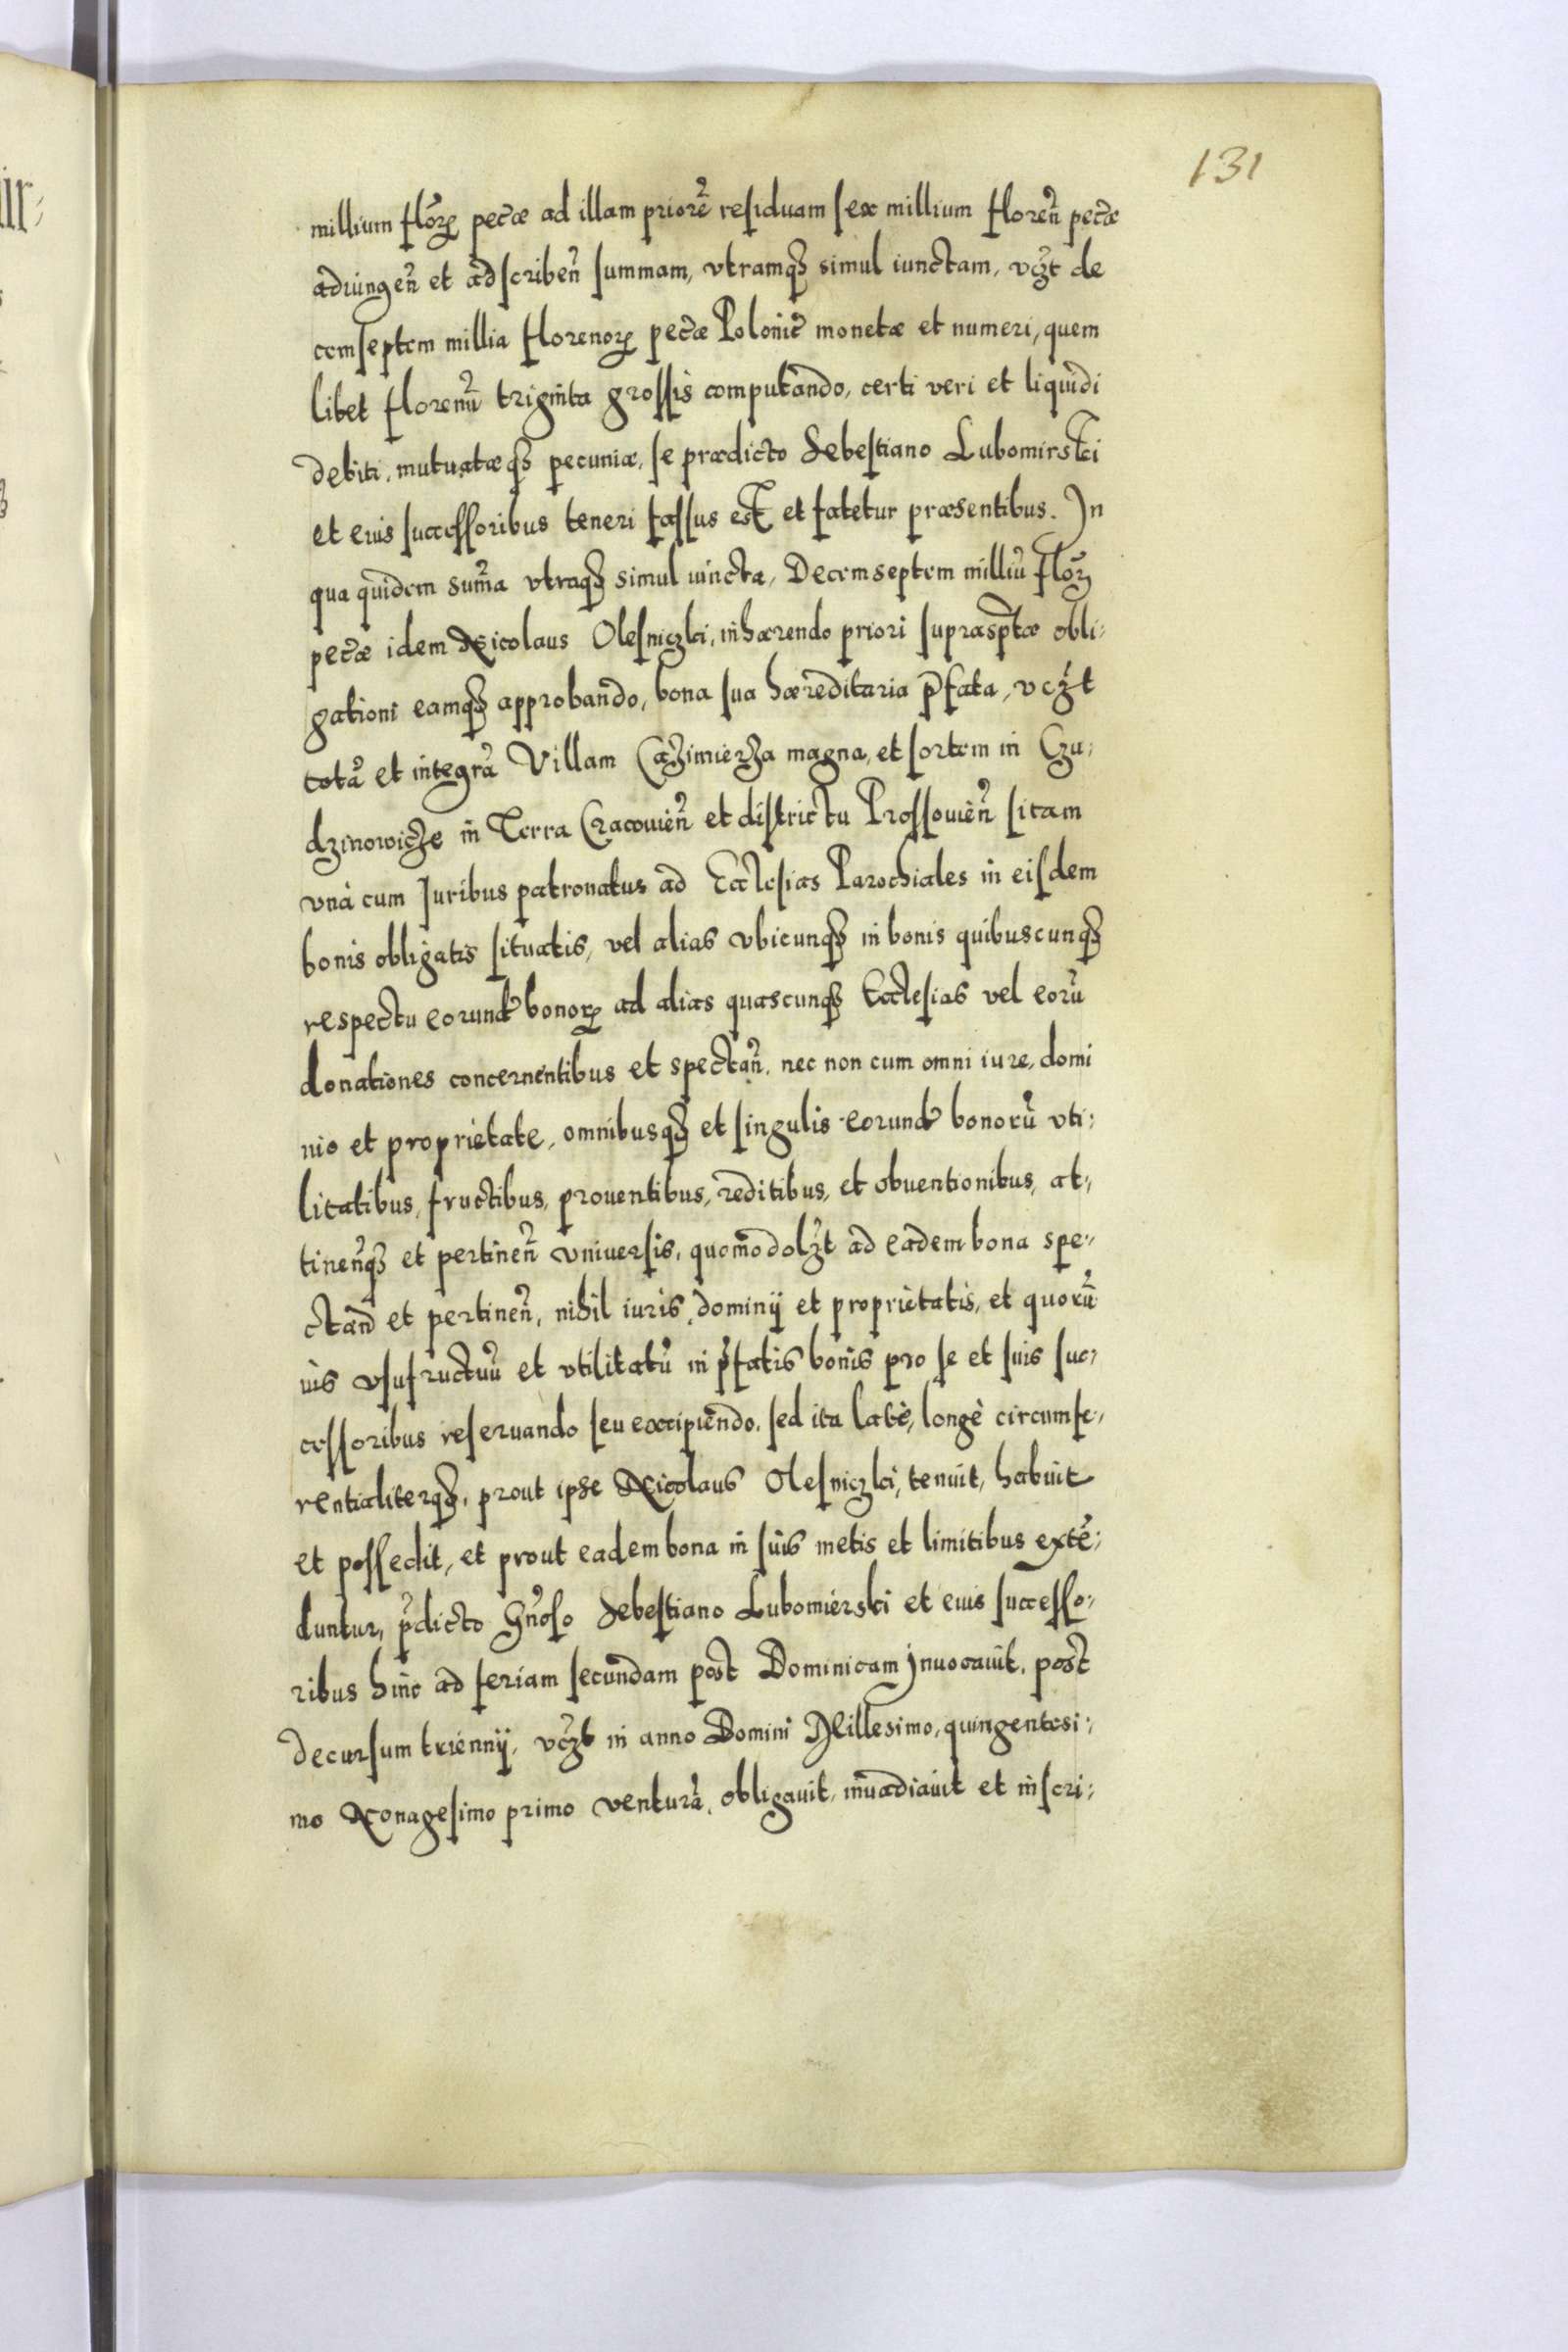 131
millium flor̃ꝝ pecæ̃ ad illam priorẽ residuam sex millium floreñ pecæ̃
adiungeñ et adscribeñ summam, vtramqꝫ simul iunctam, vcꝫt de
cemseptem millia florenorꝝ pecæ̃ Polonic̃ monetæ et numeri, quem
libet florenũ triginta grossis computando, certi veri et liquidi
debiti, mutuatæqꝫ pecuniæ, se prædicto Sebestiano Lubomirski
et eius successoribus teneri fassus est et fatetur præsentibus. In
qua quidem sum̃a vtraqꝫ simul iuncta, Decemseptem milliũ flor̃ꝝ
pecæ̃ idem Nicolaus Olesniczki, inhærendo priori suprasp̃tæ obli-
gationi eamqꝫ approbando, bona sua hæreditaria p̃fata, vcꝫt
totã et integrã Villam Cazimierza magna, et sortem in Czu-
dzinowicze in Terra Cracouieñ et districtu Prossouieñ sitam
vnà cum Juribus patronatus ad Ecclesias Parochiales in eisdem
bonis obligatis situatis, vel alias vbicunqꝫ in bonis quibuscunqꝫ
respectu eorund̃ bonorꝝ ad alias quascunqꝫ Ecclesias vel eorũ
donationes concernentibus et spectañ, nec non cum omni iure, domi
nio et proprietate, omnibusqꝫ et singulis eorund̃ bonorũ vti-
litatibus, fructibus, prouentibus, reditibus, et obuentionibus, at-
tineñqꝫ et pertineñ vniuersis, quomodolꝫt ad eadem bona spe-
ctañ et pertineñ, nihil iuris, dominij et proprietatis, et quorũ
uis vsufructuũ et vtilitatũ in p̃fatis bonis pro se et suis suc-
cessoribus reseruando seu excipiendo, sed ita latè, longè circumfe-
rentialiterqꝫ, prout ipse Nicolaus Olesniczki, tenuit, habuit
et possedit, et prout eadem bona in suis metis et limitibus extẽ-
duntur, p̃dicto Gñoso Sebestiano Lubomierski et eius successo-
ribus hinc ad feriam secundam post Dominicam Inuocauit, post
decursum triennij, vcꝫt in anno Domini Millesimo, quingentesi-
mo Nonagesimo primo venturã, obligauit, inuadiauit et inscri-